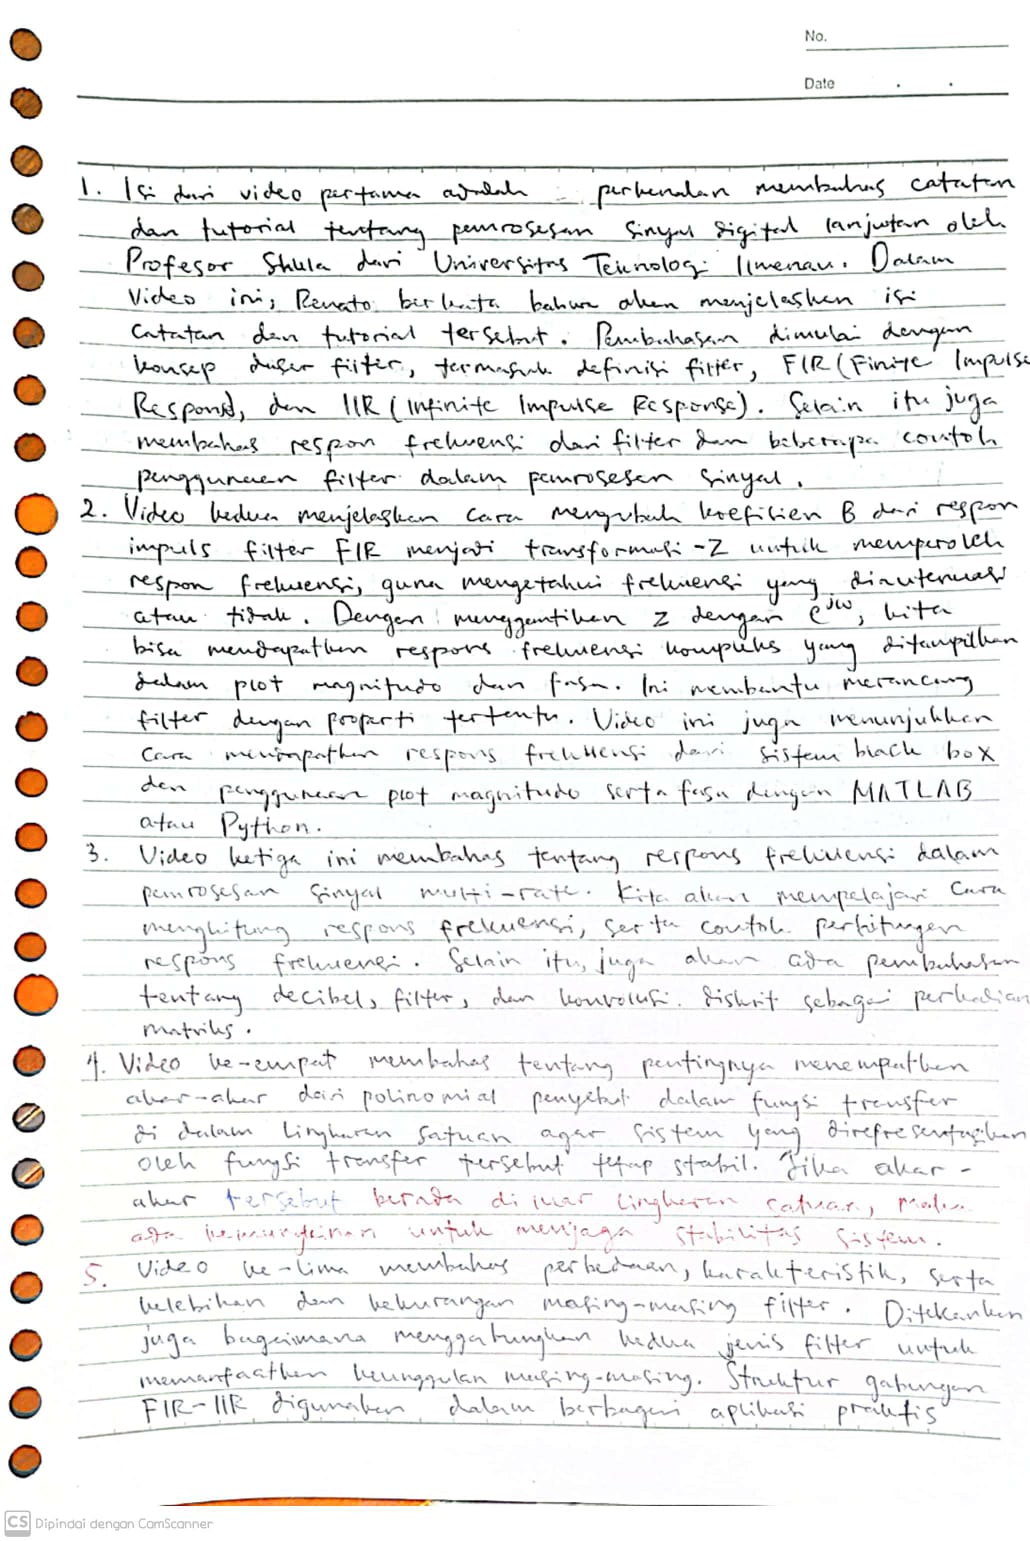 No.
Date . .
1. Isi dari video pertama adalah perkenalan membahas catatan
dan tutorial tentang pemrosesan sinyal digital lanjutan oleh
Profesor Shula dari Universitas Teknologi Ilmenau. Dalam
Video ini, Renato berkata bahwa akan menjelaskan isi
catatan dan tutorial tersebut. Pembahasan dimulai dengan
konsep dasar filter, termasuk definisi filter, FIR (Finite Impulse
Response), dan IIR (Infinite Impulse Response). Selain itu juga
membahas respon frekuensi dari filter dan beberapa contoh
penggunaan filter dalam pemrosesan sinyal.
2. Video kedua menjelaskan cara mengubah koefisien B dari respon
impuls filter FIR menjadi transformasi-Z untuk memperoleh
respon frekuensi, guna mengetahui frekuensi yang diatenuasi
atau tidak. Dengan menggantikan z dengan e^jω, kita
bisa mendapatkan respons frekuensi kompleks yang ditampilkan
dalam plot magnitudo dan fasa. Ini membantu merancang
filter dengan properti tertentu. Video ini juga menunjukkan
cara mendapatkan respons frekuensi dari sistem black box
dan penggunaan plot magnitudo serta fasa dengan MATLAB
atau Python.
3. Video ketiga ini membahas tentang respons frekuensi dalam
pemrosesan sinyal multi-rate. Kita akan mempelajari cara
menghitung respons frekuensi, serta contoh perhitungan
respons frekuensi. Selain itu, juga akan ada pembahasan
tentang decibel, filter, dan konvolusi diskrit sebagai perkalian
matriks.
4. Video ke-empat membahas tentang pentingnya menempatkan
akar-akar dari polinomial penyebut dalam fungsi transfer
di dalam lingkaran satuan agar sistem yang direpresentasikan
oleh fungsi transfer tersebut tetap stabil. Jika akar-
akar tersebut berada di luar lingkaran satuan, maka
ada kemungkinan untuk menjaga stabilitas sistem.
5. Video ke-lima membahas perbedaan, karakteristik, serta
kelebihan dan kekurangan masing-masing filter. Ditekankan
juga bagaimana menggabungkan kedua jenis filter untuk
memanfaatkan keunggulan masing-masing. Struktur gabungan
FIR-IIR digunakan dalam berbagai aplikasi praktis
CS Dipindai dengan CamScanner